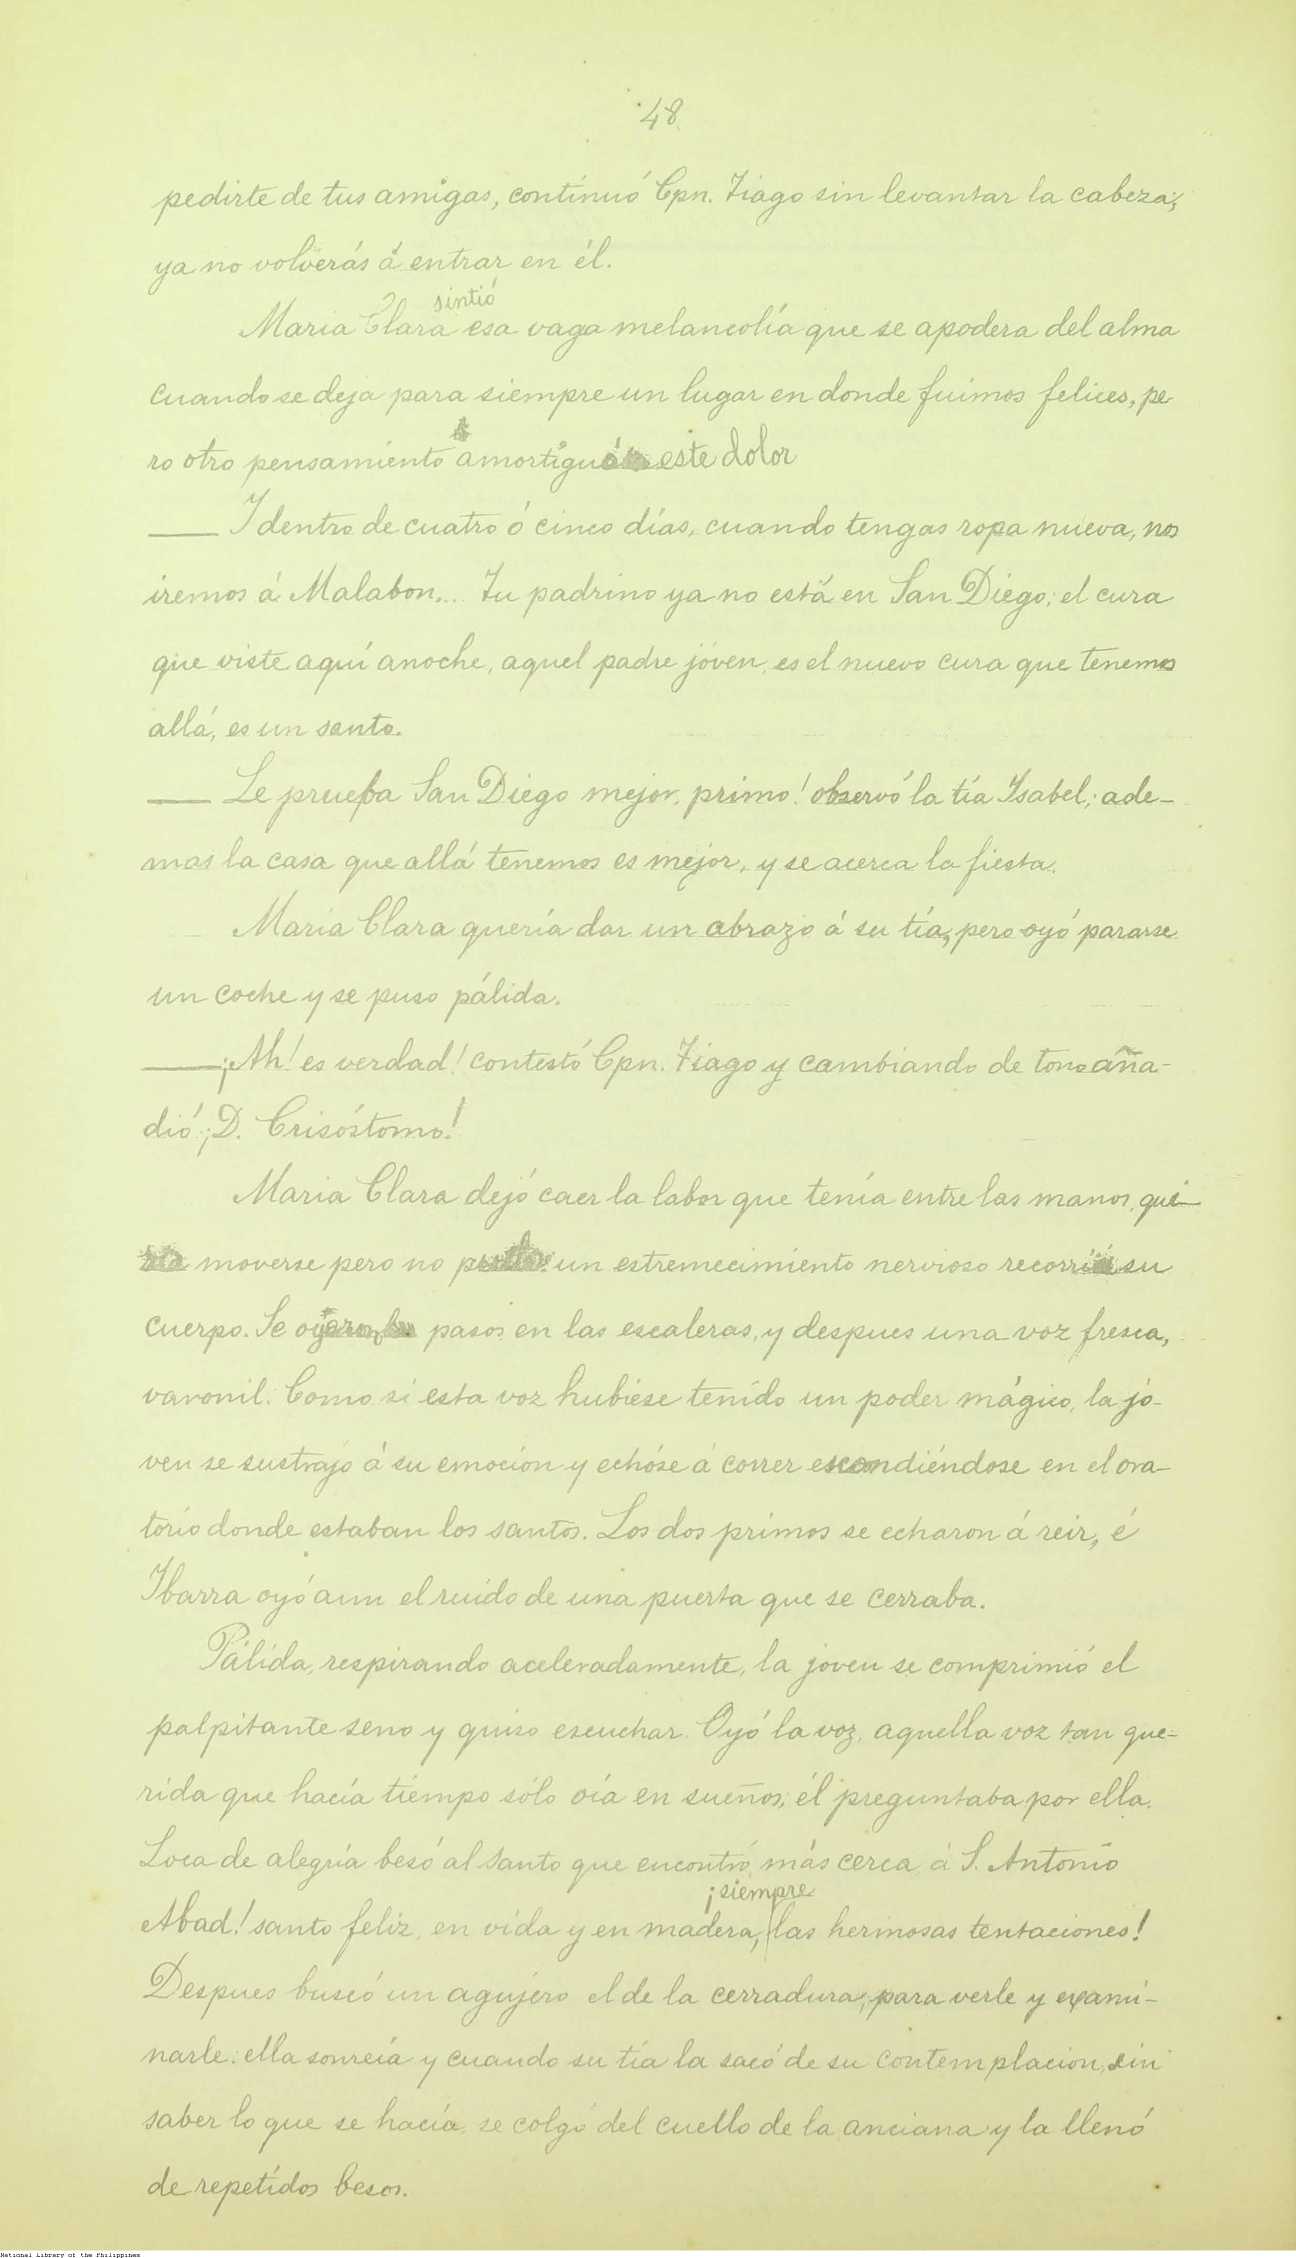 48
pedirte de tus amigas, continuó Cpn. Tiago sin levantar la cabeza;
ya no volverás á entrar en él.
sintió
Maria Clara esa vaga melancolía que se apodera del alma
cuando se deja para siempre un lugar en donde fuimos felices, pe
ro otro pensamiento amortiguó este dolor
— Y dentro de cuatro ó cinco días, cuando tengas ropa nueva, nos
iremos á Malabon... Tu padrino ya no está en San Diego; el cura
que viste aquí anoche, aquel padre jóven, es el nuevo cura que tenemos
allá, es un santo.
— Le prueba San Diego mejor, primo! observó la tía Isabel; ade-
mas la casa que allá tenemos es mejor, y se acerca la fiesta.
Maria Clara quería dar un abrazo á su tía, pero oyó pararse
un coche y se puso pálida.
— ¡Ah! es verdad! contestó Cpn. Tiago y cambiando de tono aña-
dió: ¡D. Crisóstomo!
Maria Clara dejó caer la labor que tenía entre las manos, qui
moverse pero no un estremecimiento nervioso recorrió su
cuerpo. Se oyeron pasos en las escaleras, y despues una voz fresca,
varonil. Como si esta voz hubiese tenido un poder mágico, la jó-
ven se sustrajo á su emoción y echóse á correr escondiéndose en el ora-
torio donde estaban los santos. Los dos primos se echaron á reir, é
Ibarra oyó aun el ruido de una puerta que se cerraba.
Pálida, respirando aceleradamente, la joven se comprimió el
palpitante seno y quiso escuchar. Oyó la voz, aquella voz tan que-
rida que hacía tiempo sólo oía en sueños; él preguntaba por ella.
Loca de alegría besó al santo que encontró más cerca, á S. Antonio
¡siempre
Abad! santo feliz, en vida y en madera, las hermosas tentaciones!
Despues buscó un agujero el de la cerradura, para verle y exami-
narle: ella sonreía y cuando su tía la sacó de su contemplacion, sin
saber lo que se hacía se colgó del cuello de la anciana y la llenó
de repetidos besos.
National Library of the Philippines